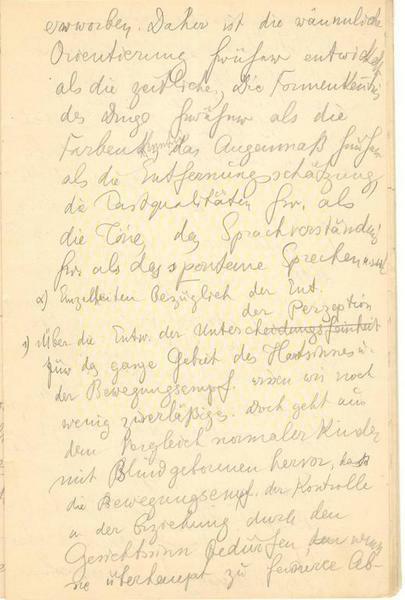 erworben. Daher ist die räumliche
Orientierung früher entwickelt
als die zeitliche, die Formenkenntnis
der Dinge früher als die
Farbenkenntnis, das Augenmaß früher
als die Entfernungsschätzung,
die Tastqualitäten fr. als
die Töne, das Sprachverständnis
fr. als das spontane Sprechen u.s.w.
α) Einzelheiten Bezüglich der Ent.
der Perzeption
1) Über die Entw. der Unterscheidungsfeinheit
für das ganze Gebiet des Hautsinnes u.
der Bewegungsempf. wissen wir noch
wenig zuverläßiges. Doch geht aus
dem Vergleich normaler Kinder
mit Blindgeborenen hervor, daß
die Bewegungsempf. der Kontrolle
u. der Erziehung durch den
Gesichtssinn Bedürfen, wenn
sie überhaupt zu feinerer Ab-